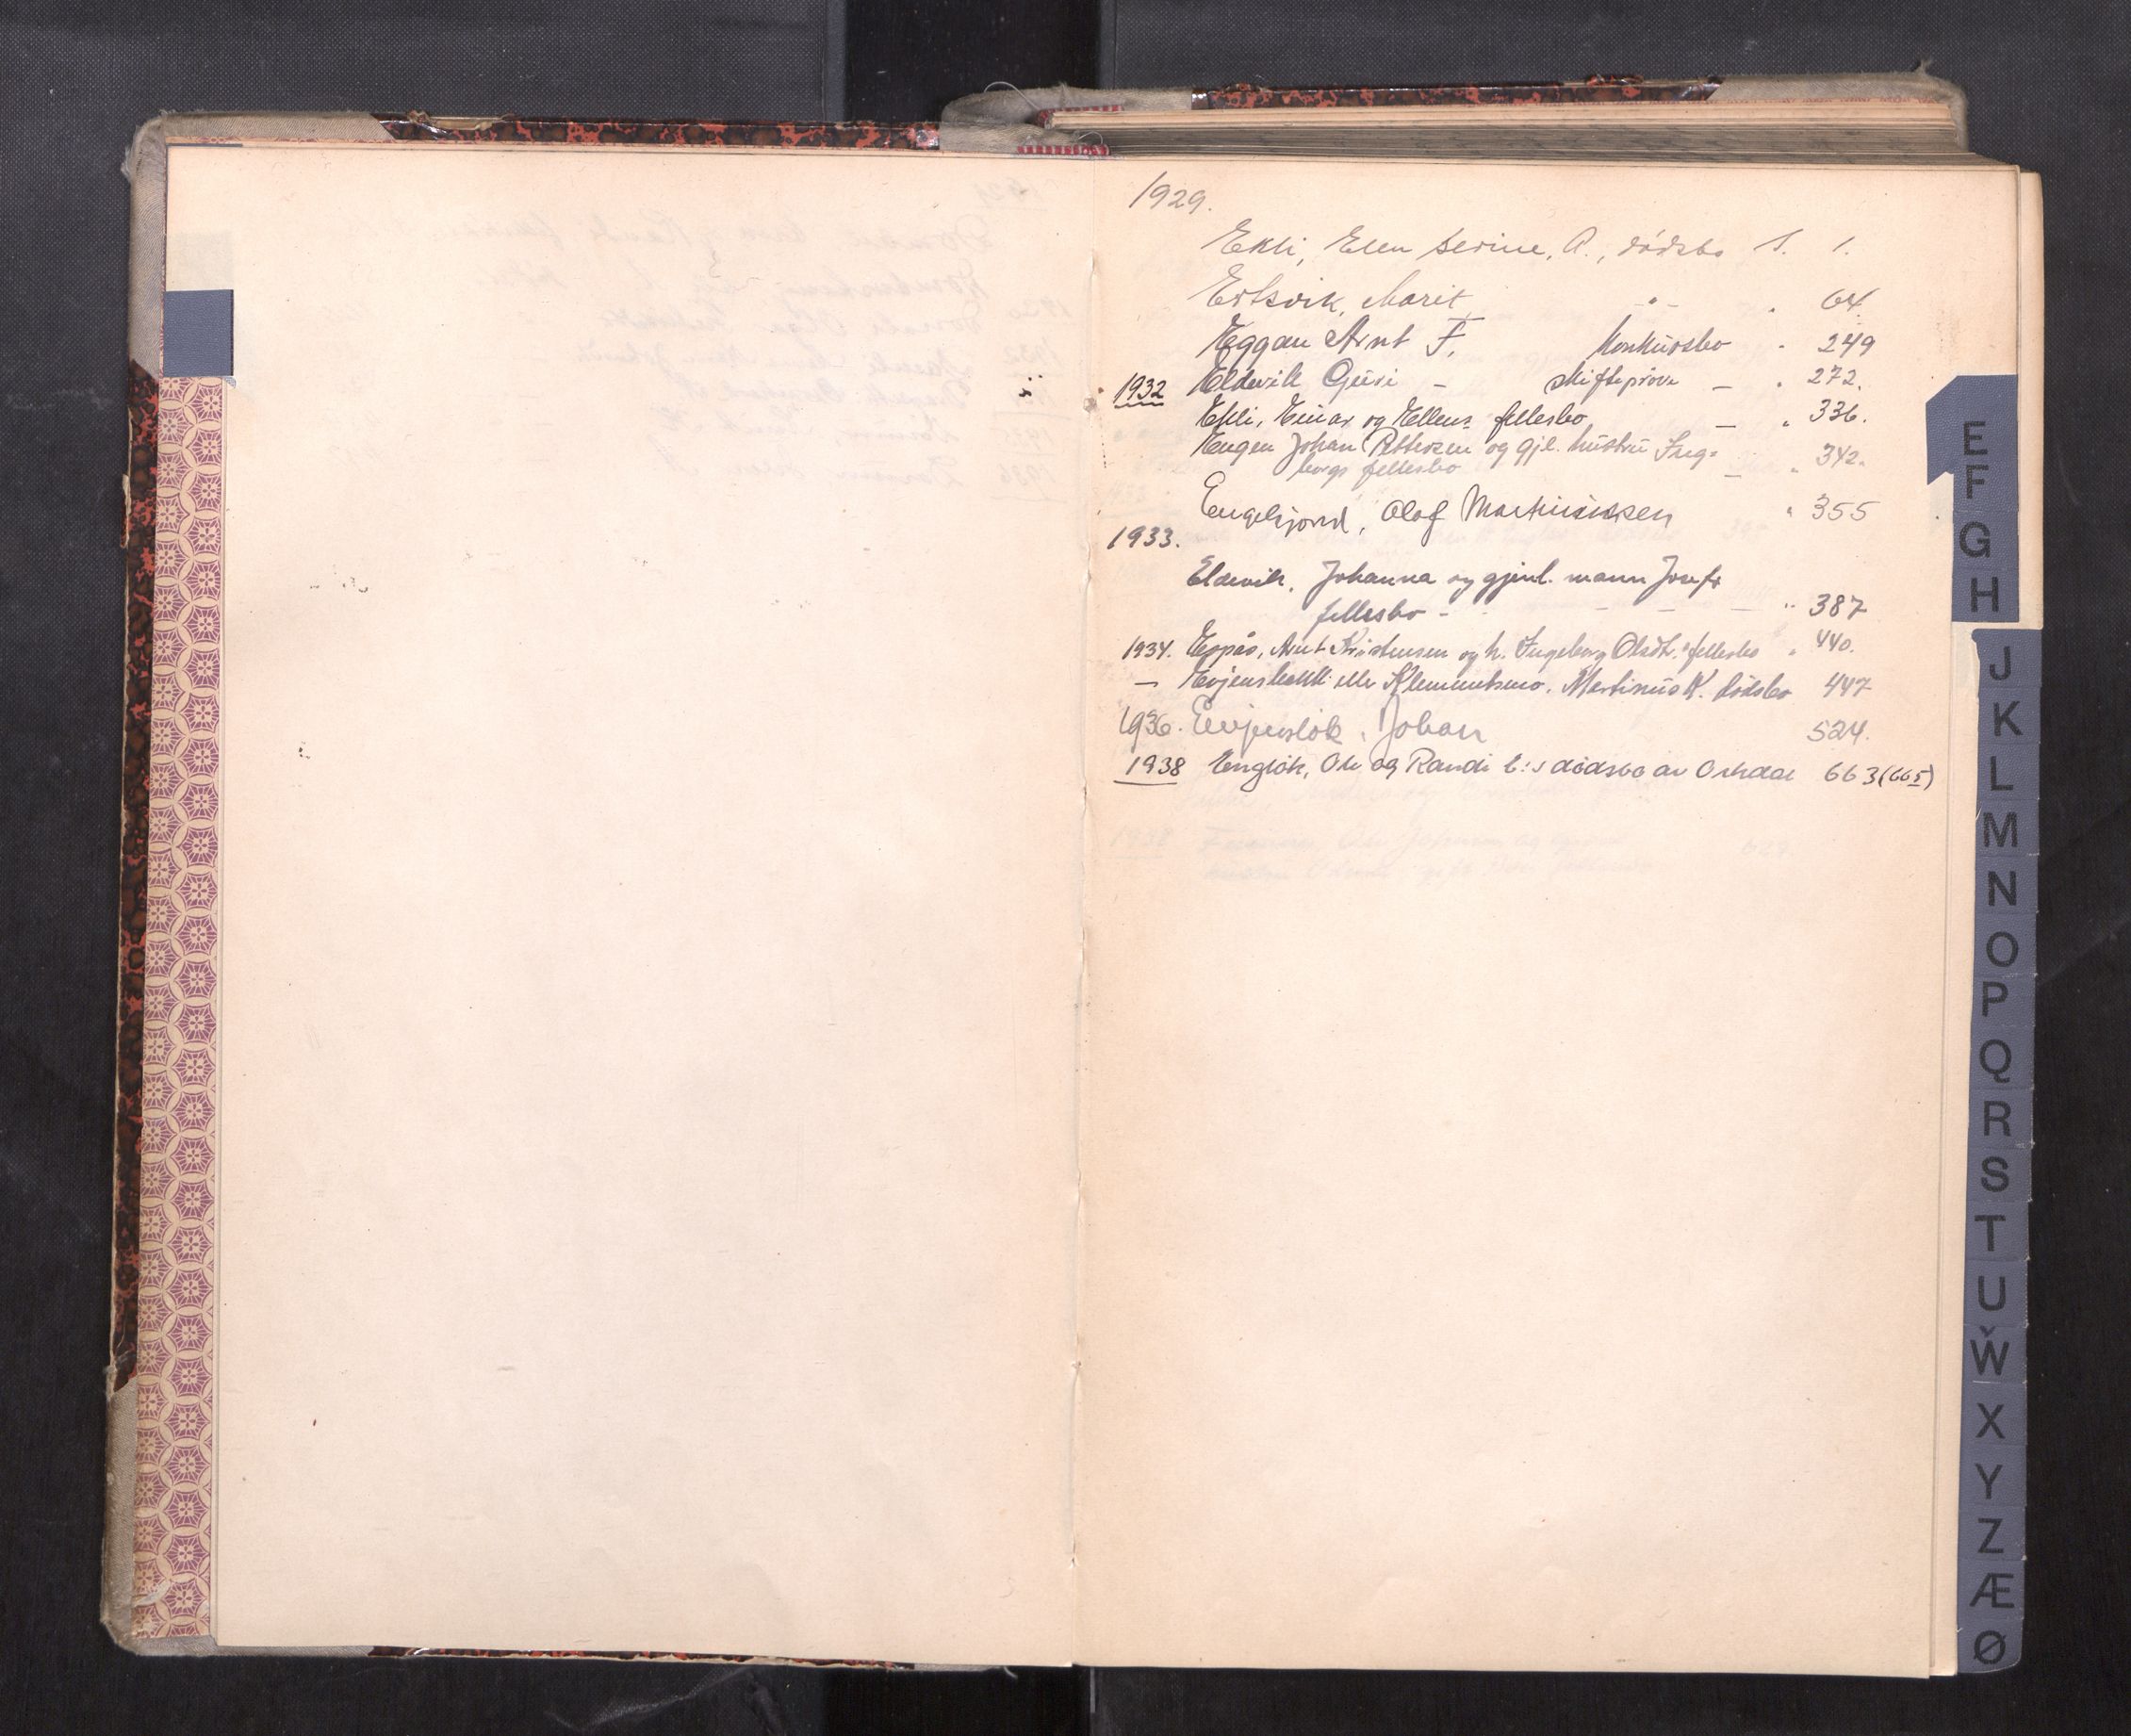 1929.
Ekli, Elen Serine, A., dødsbo S. 1.
Marit, -"- " 64.
Eggan Arnt F. Konkursbo " 249
1932 Eldevik Guri - skifteprøve - " 272.
Ekli, Einar og Ellens fellesbo - " 336.
Engen Johan Pettersen og gjl. hustru Inge-
borgs fellesbo - " 342.
Olaf Martinussen " 355
1933.
Eldevik, Johanna og gjenl. mann Josefs
fellesbo - - - - " 387
1934. Espås, Arnt Kristensen og h. Ingeborg Olsdtr.s fellesbo " 440.
- Evjensbakk eller Klemmetsmo, Martinus K. dødsbo 447
1936. Johan 524.
1938 Englok, Ole og Randi E:s dødsbo av Orkdal 663 (665)
E
F
G
H
J
K
L
M
N
O
P
Q
R
S
T
U
W
X
Y
Z
Æ
Ø